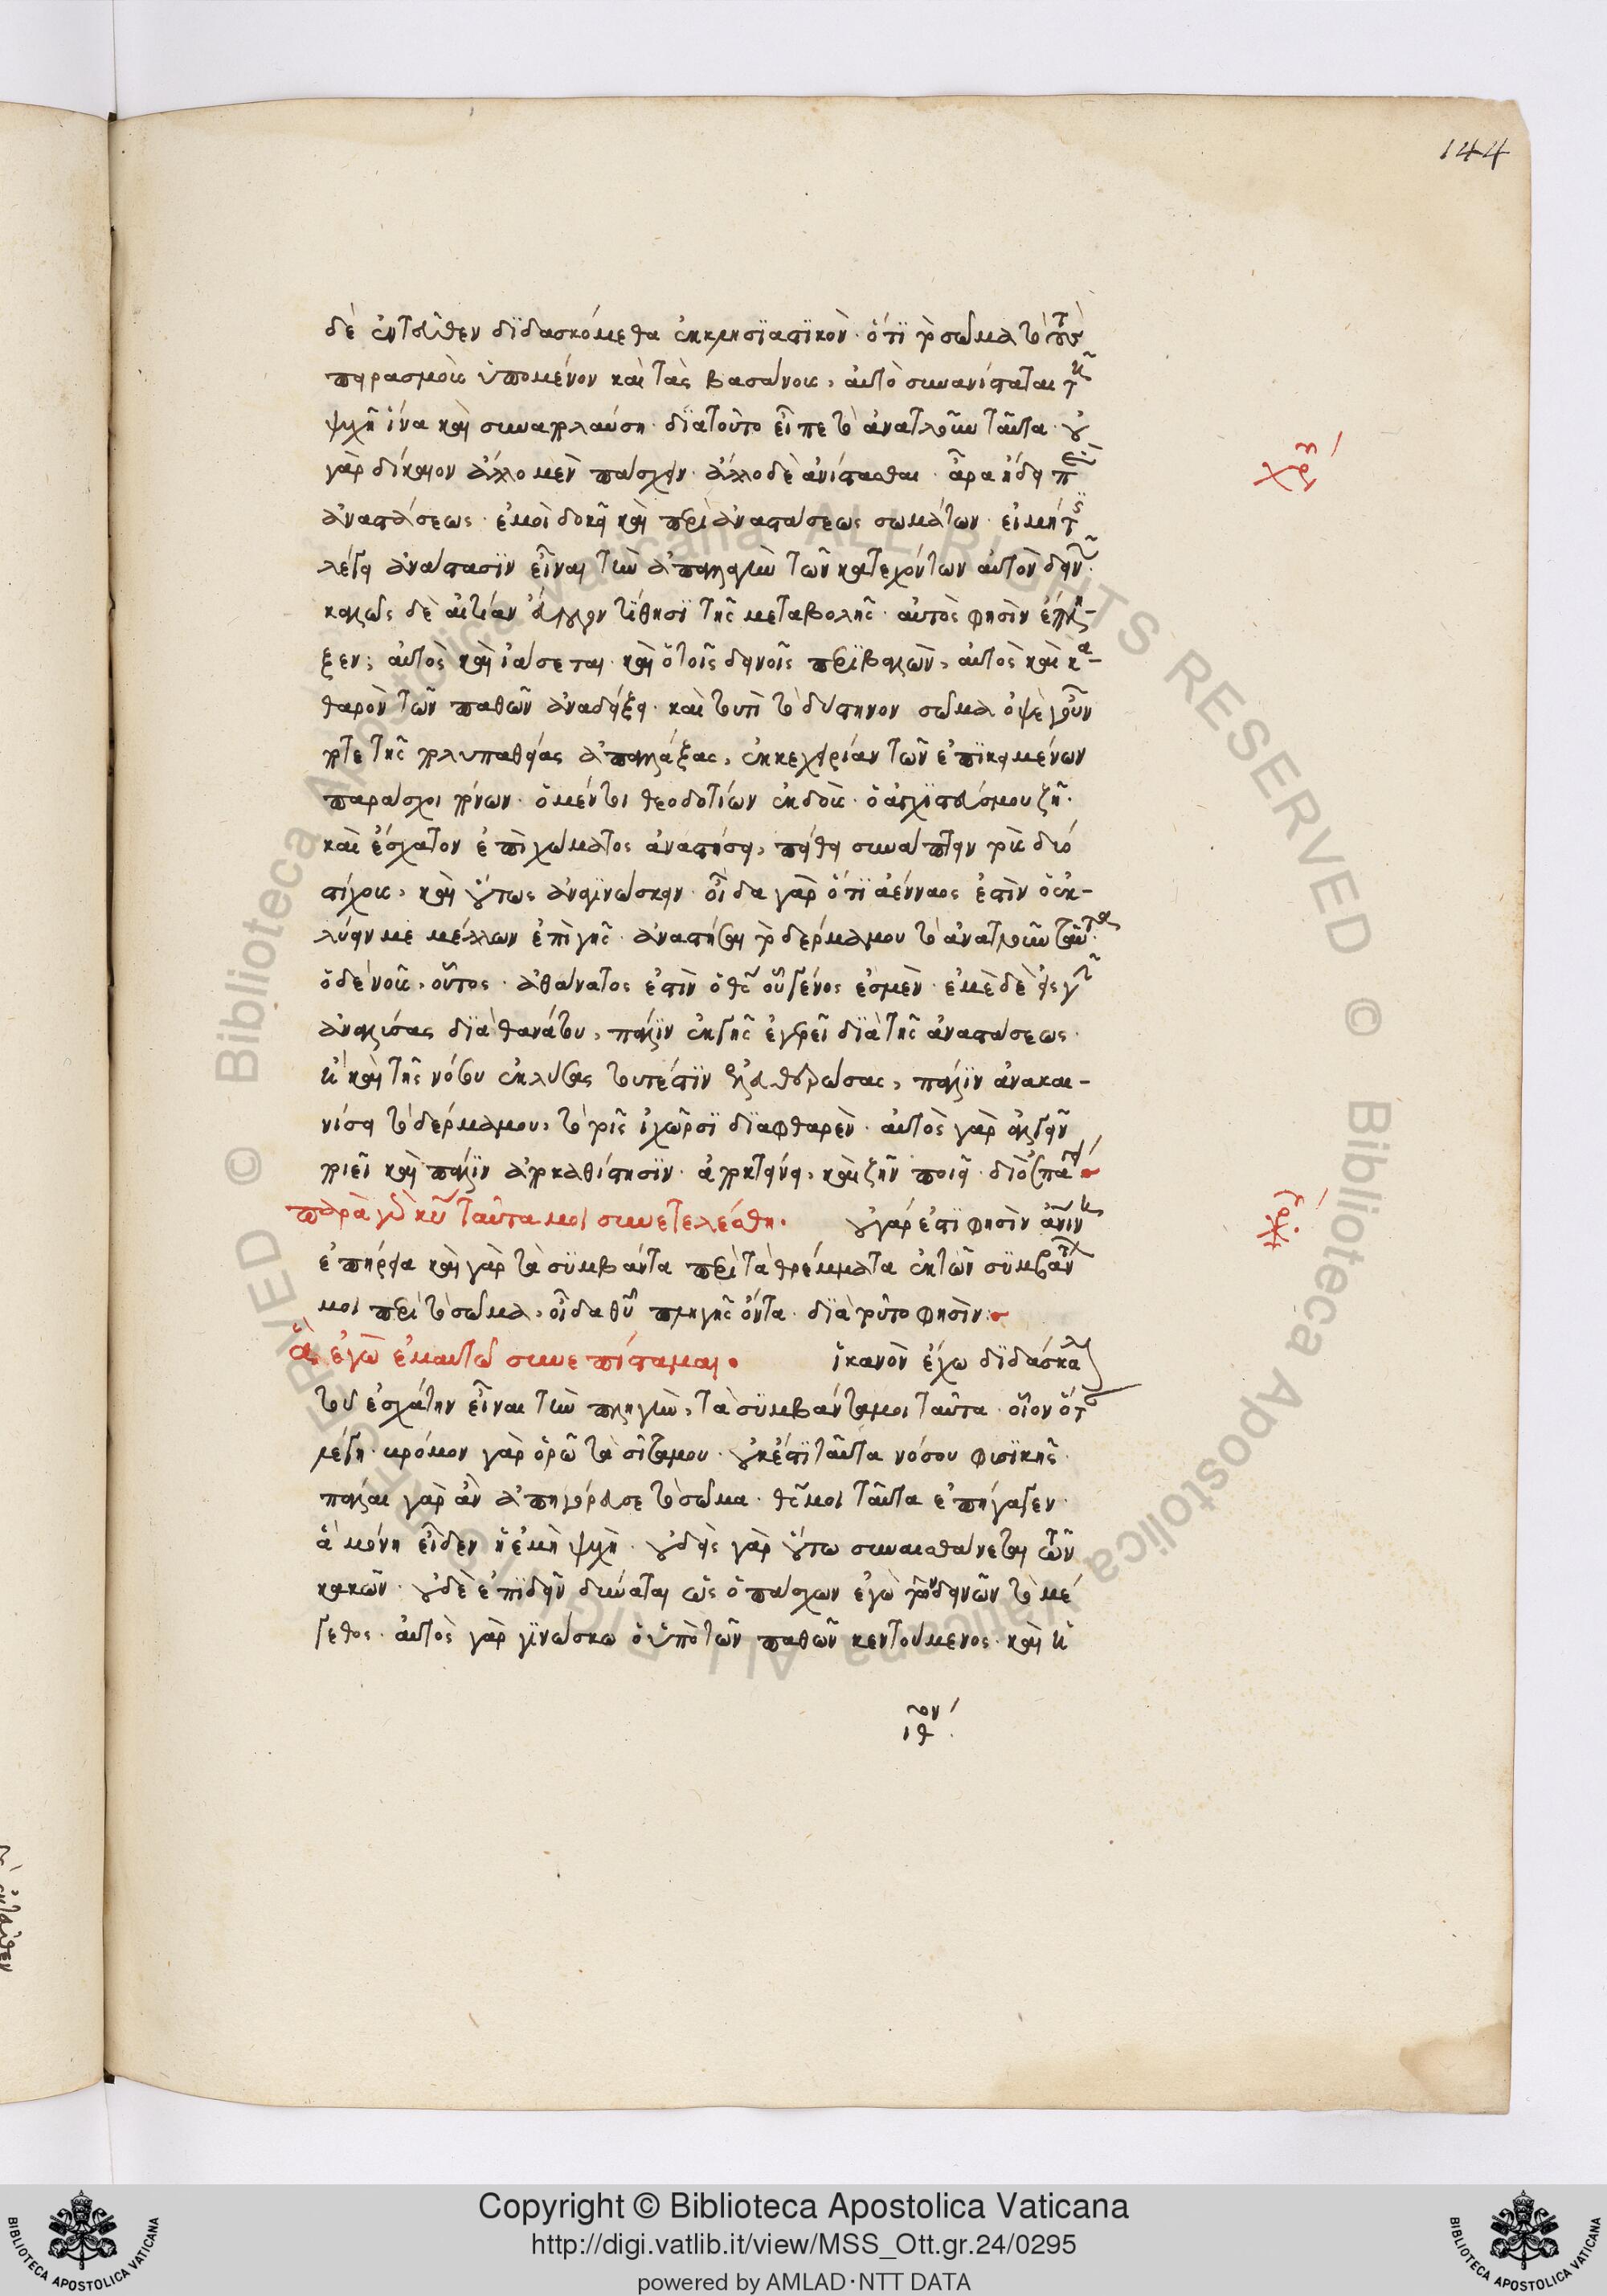 144
δὲ ἐντεῦθεν διδασκόμεθα ἐκκλησιαστικὸν · ὅτι τὸ σῶμα τὸ
πειρασμοὺς ὑπομένον καὶ τὰς βασάνους, αὐτὸ συνανίσταται τῇ
ψυχῇ ἵνα καὶ συναπολαύσῃ · διατοῦτο εἶπε τὸ ἀνατλοῦν ταῦτα · οὐ
γὰρ δίκαιον ἄλλο μὲν πάσχειν · ἄλλο δὲ ἀνίστασθαι · ἄρα ἤδη
ἀναστάσεως · ἐμοὶ δοκεῖ καὶ περὶ ἀναστάσεως σωμάτων · εἰ μή τις
λέγει ἀνάστασιν εἶναι τὴν ἀπαλλαγὴν τῶν κατεχόντων αὐτὸν δεινῶν
καλῶς δὲ αἰτίαν τίθησι τῆς μεταβολῆς · αὐτὸς φησὶν
ξεν, αὐτὸς καὶ ἰάσεται · καὶ ὁ τοῖς δεινοῖς περιβαλὼν, αὐτὸς καὶ κα-
θαρὸν τῶν παθῶν ἀναδείξει · καὶ τουτὶ τὸ δύστηνον σῶμα ὀψὲ γοῦν
ποτε τῆς πολυπαθείας ἀπαλλάξας, ἐκκεχειρίαν τῶν ἐπικειμένων
παράσχοι πόνων · ὁ μέντοι θεοδοτίων ἐκδοὺς · ὁ ἀγχιστεύς μου ζῇ ·
καὶ ἔσχατον ἐπὶ χώματος ἀναστήσει, πείθει συνάπτειν τοὺς δύο
στίχους, καὶ οὕτως ἀναγινώσκειν · οἶδα γὰρ ὅτι ἀένναος ἐστὶν ὁ ἐκ-
λύειν με μέλλων ἐπὶ γῆς · ἀναστῆσαι τὸ δέρμα μου τὸ ἀνατλοῦν ταῦτα ·
ὁ δὲ νοῦς, οὗτος · ἀθάνατος ἐστὶν ὁ θς οὗ γένος ἐσμὲν · ἐμὲ δὲ εἰς γῆν
ἀναλύσας διὰ θανάτου, πάλιν ἐκ γῆς ἐγερεῖ διὰ τῆς ἀναστάσεως ·
ἢ καὶ τῆς νόσου ἐκλύσας τουτέστιν ἐλευθερώσας, πάλιν ἀνακαι-
νίσει τὸ δέρμα μου, τὸ τοῖς ἰχῶρσι διαφθαρὲν · αὐτὸς γὰρ ἀλγεῖν
ποιεῖ καὶ πάλιν ἀποκαθίστησιν · ἀποκτείνει, καὶ ζῆν ποιεῖ ·
παρὰ γὰρ κυ ταῦτα μοι συνετελέσθη · οὐ γάρ ἐστι φησὶν ἀνθρωπίνη
ἐπήρεια καὶ γὰρ τὰ συμβάντα περὶ τὰ θρέμματα ἐκ τῶν συμβάντων
μοι περὶ τὸ σῶμα, οἶδα θυ πληγῆς ὄντα · διὰ τοῦτο φησὶν
ἃ ἐγὼ ἐμαυτῷ συνεπίσταμαι · ἱκανὸν ἔχω διδάσκαλον
τοῦ ἐσχάτην εἶναι τὴν πληγὴν, τὰ συμβάντα μοι ταῦτα · οἷον ὅτι
λέγει · βρόμον γὰρ ὁρῶ τὰ σῖτα μου · οὐκ ἔστι ταῦτα νόσου φυσικῆς ·
πάλαι γὰρ ἂν ἀπηγόρευσε τὸ σῶμα · θς μοι ταῦτα ἐπήγαγεν ·
ἃ μόνη εἶδεν ἡ ἐμὴ ψυχὴ · οὐδεὶς γὰρ οὕτω συναισθάνεται τῶν
κακῶν · οὐδὲ ἐπιδεῖν δύναται ὡς ὁ πάσχων ἐγὼ τῶν δεινῶν τὸ μέ
γεθος · αὐτὸς γὰρ γινώσκω ὁ ὑπὸ τῶν παθῶν κεντούμενος · καὶ ἡ
Copyright © Biblioteca Apostolica Vaticana
http://digi.vatlib.it/view/MSS_Ott.gr.24/0295
powered by AMLAD·NTT DATA